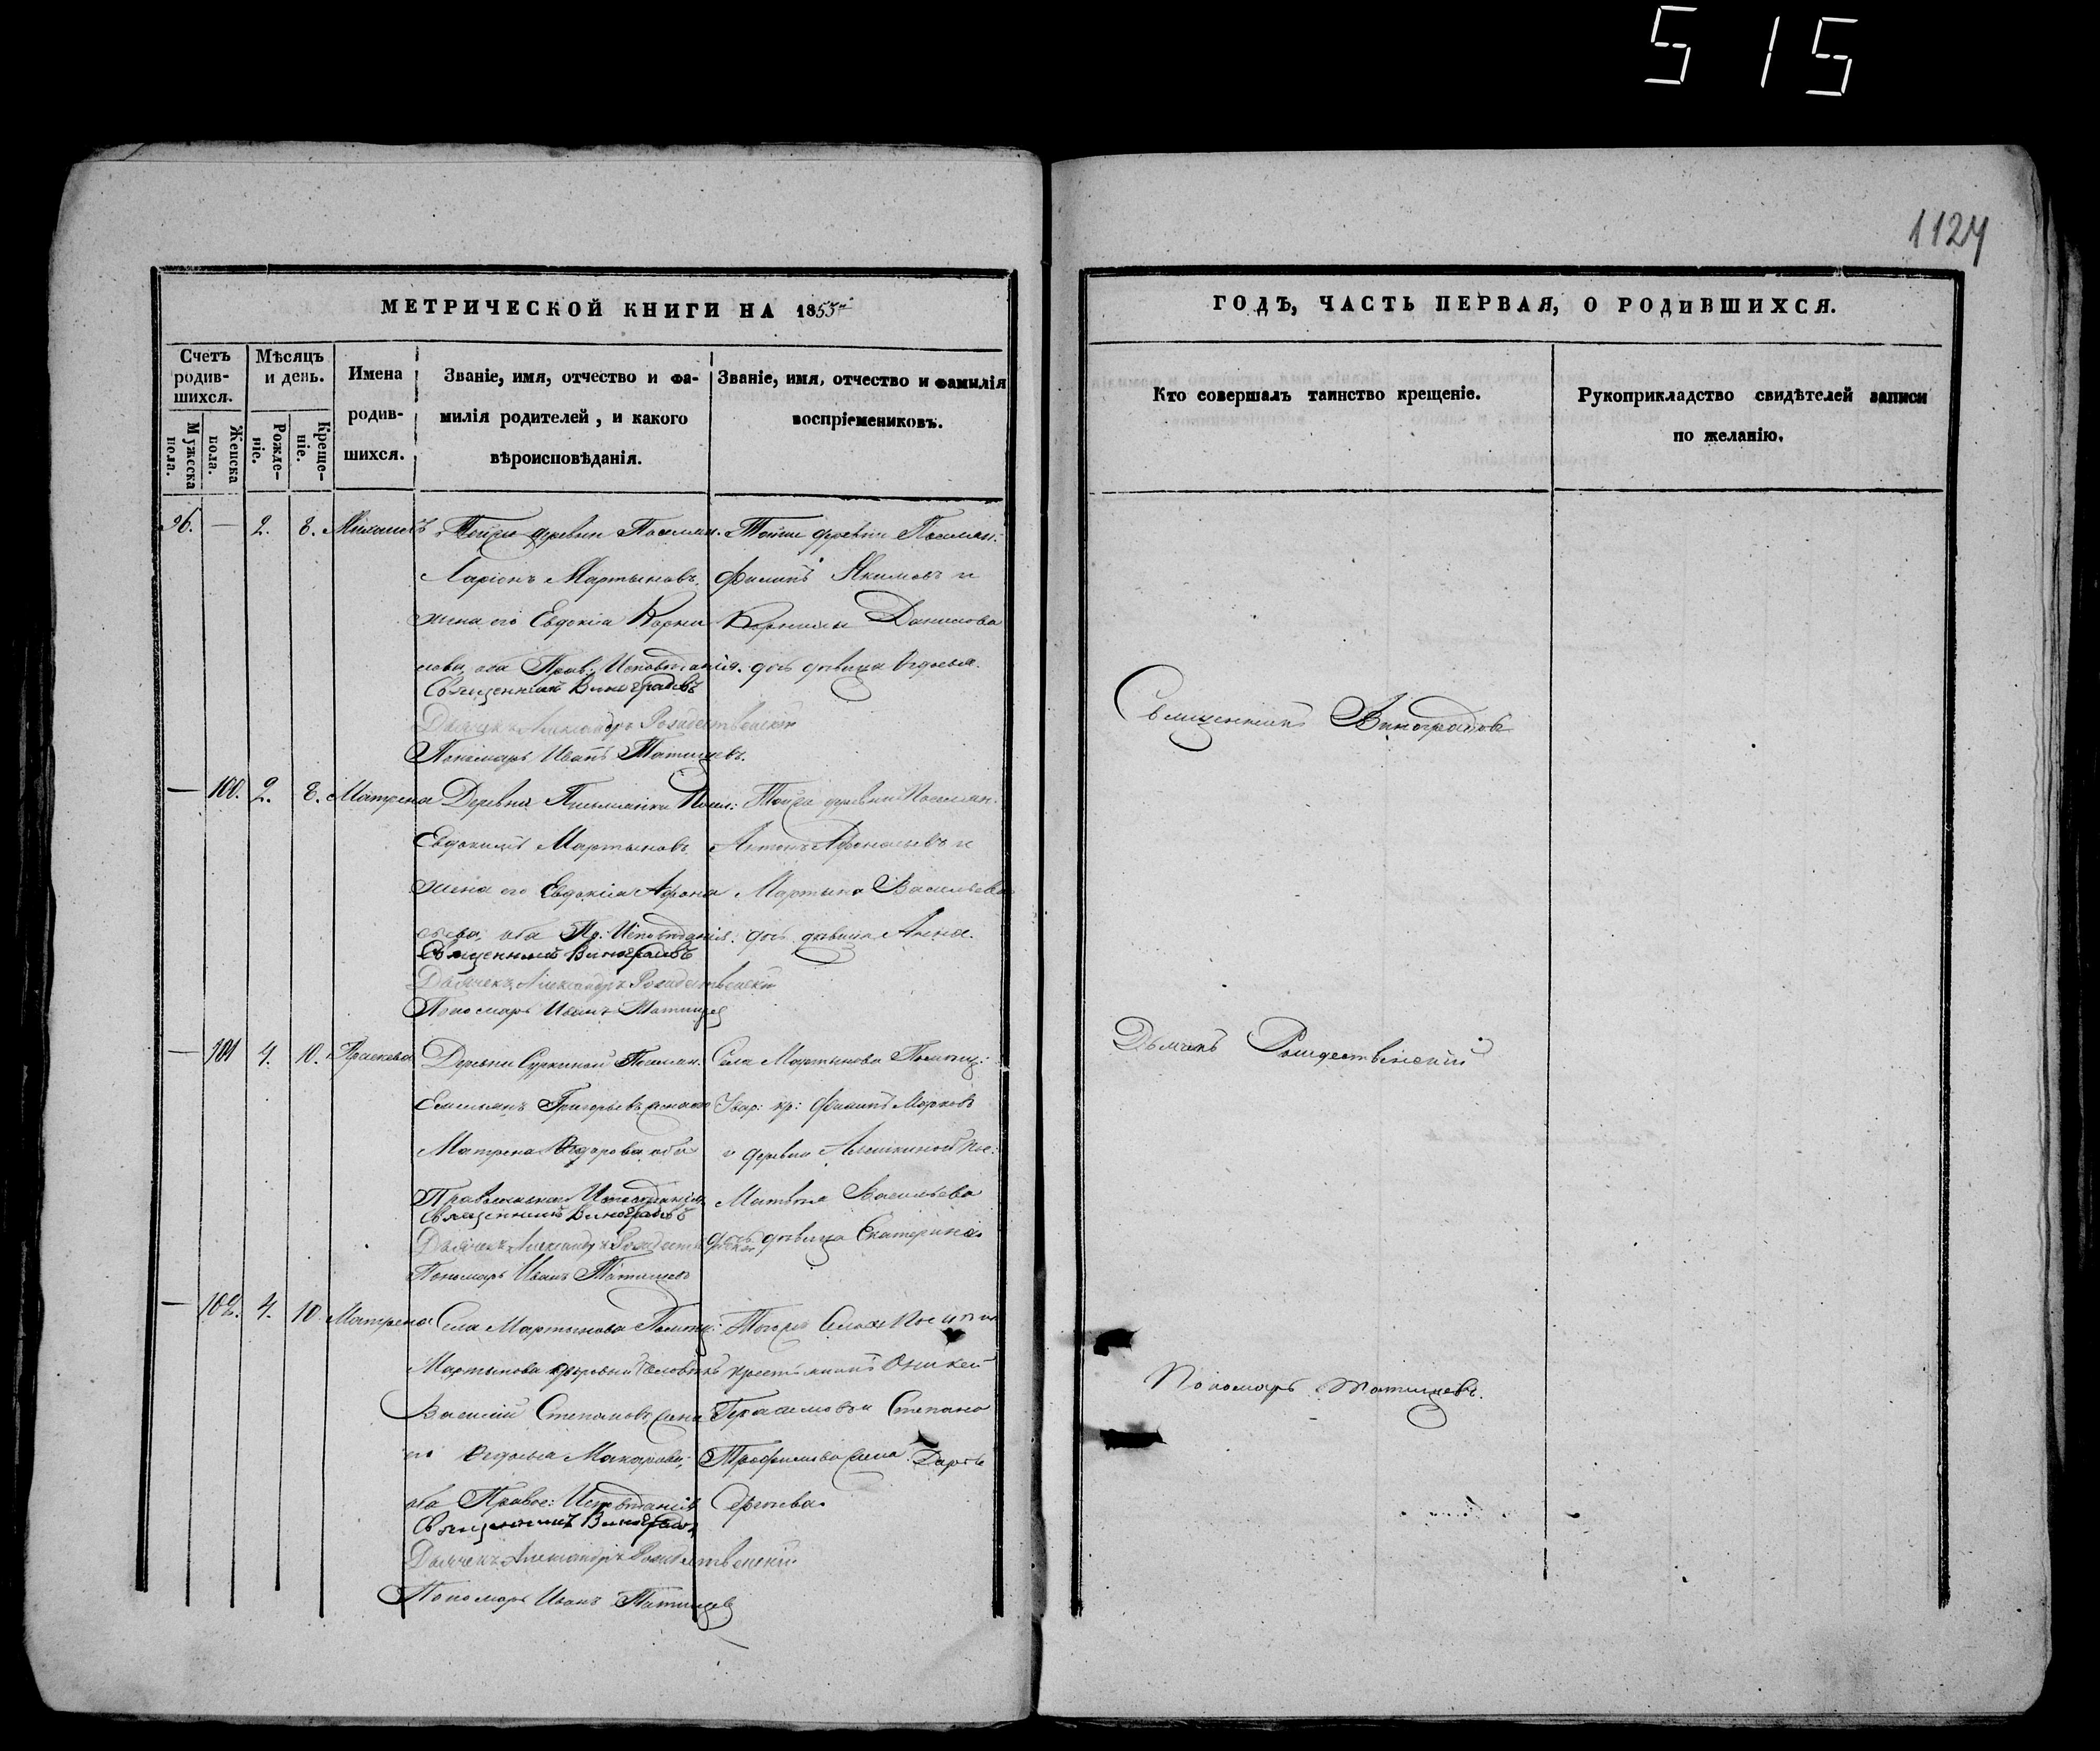 515
1124
МЕТРИЧЕСКОЙ КНИГИ НА 1853
ГОДЪ, ЧАСТЬ ПЕРВАЯ, О РОДИВШИХСЯ.
Счетъ родив-шихся.
Мужеска пола.
Женска пола.
Мѣсяцъ и день.
Рожде-ніе.
Креще-ніе.
Имена родив-шихся.
Званіе, имя, отчество и фа-
милія родителей, и какого
вѣроисповѣданія.
Званіе, имя, отчество и фамилія
воспріемениковъ.
Кто совершалъ таинство крещеніе.
Рукоприкладство свидѣтелей записи
по желанію.
96. — 2. 8.
Тойже деревни
Ларіонъ Мартыновъ
жена его Евдокія Корни
лова, оба Прав: Исповѣданія.
Священникъ Виноградовъ
Дьячекъ Александръ Рождественскій
Пономарь Иванъ Татищевъ.
Тойже деревни
Филипъ Якимовъ и
Корнилы Данилова
дочь дѣвица
— 100. 2. 8. Матрена
Деревни
Евдокимъ Мартыновъ
жена его Евдокія Афона
сьева, оба Пр: Исповѣданія.
Священникъ Виноградовъ
Дьячекъ Александръ Рождественскій
Пономарь Иванъ Татищев
Тойже деревни
Антонъ Афонасьевъ и
Мартына Васильева
дочь дѣвица Анна.
— 101 4. 10. Праскева
Деревни
Емельянъ Григорьевъ жена его
Матрена Федорова оба
Православнаго Исповѣданія
Священникъ Виноградовъ
Дьячекъ Александръ Рождественскій
Пономарь Иванъ Татищевъ
Села Мартынова
кр: Филипъ Марковъ
и деревни
Матвѣя Васильева
дочь дѣвица Екатерина
— 102. 4. 10 Матрена
Села Мартынова
Мартынова дворовый человѣкъ
Василій Степановъ жена
его Макарова,
оба Правос: Исповѣданія
Священникъ Виноградовъ
Дьячекъ Александръ Рождественскій
Пономарь Иванъ Татищев
Тогоже Села
крестьянинъ Аникей
Герасимовъ и Степана
Трофимова жена Дарья
Сергѣева.
Священникъ Виноградовъ
Дьячекъ Рождественскій
Пономарь Татищевъ.